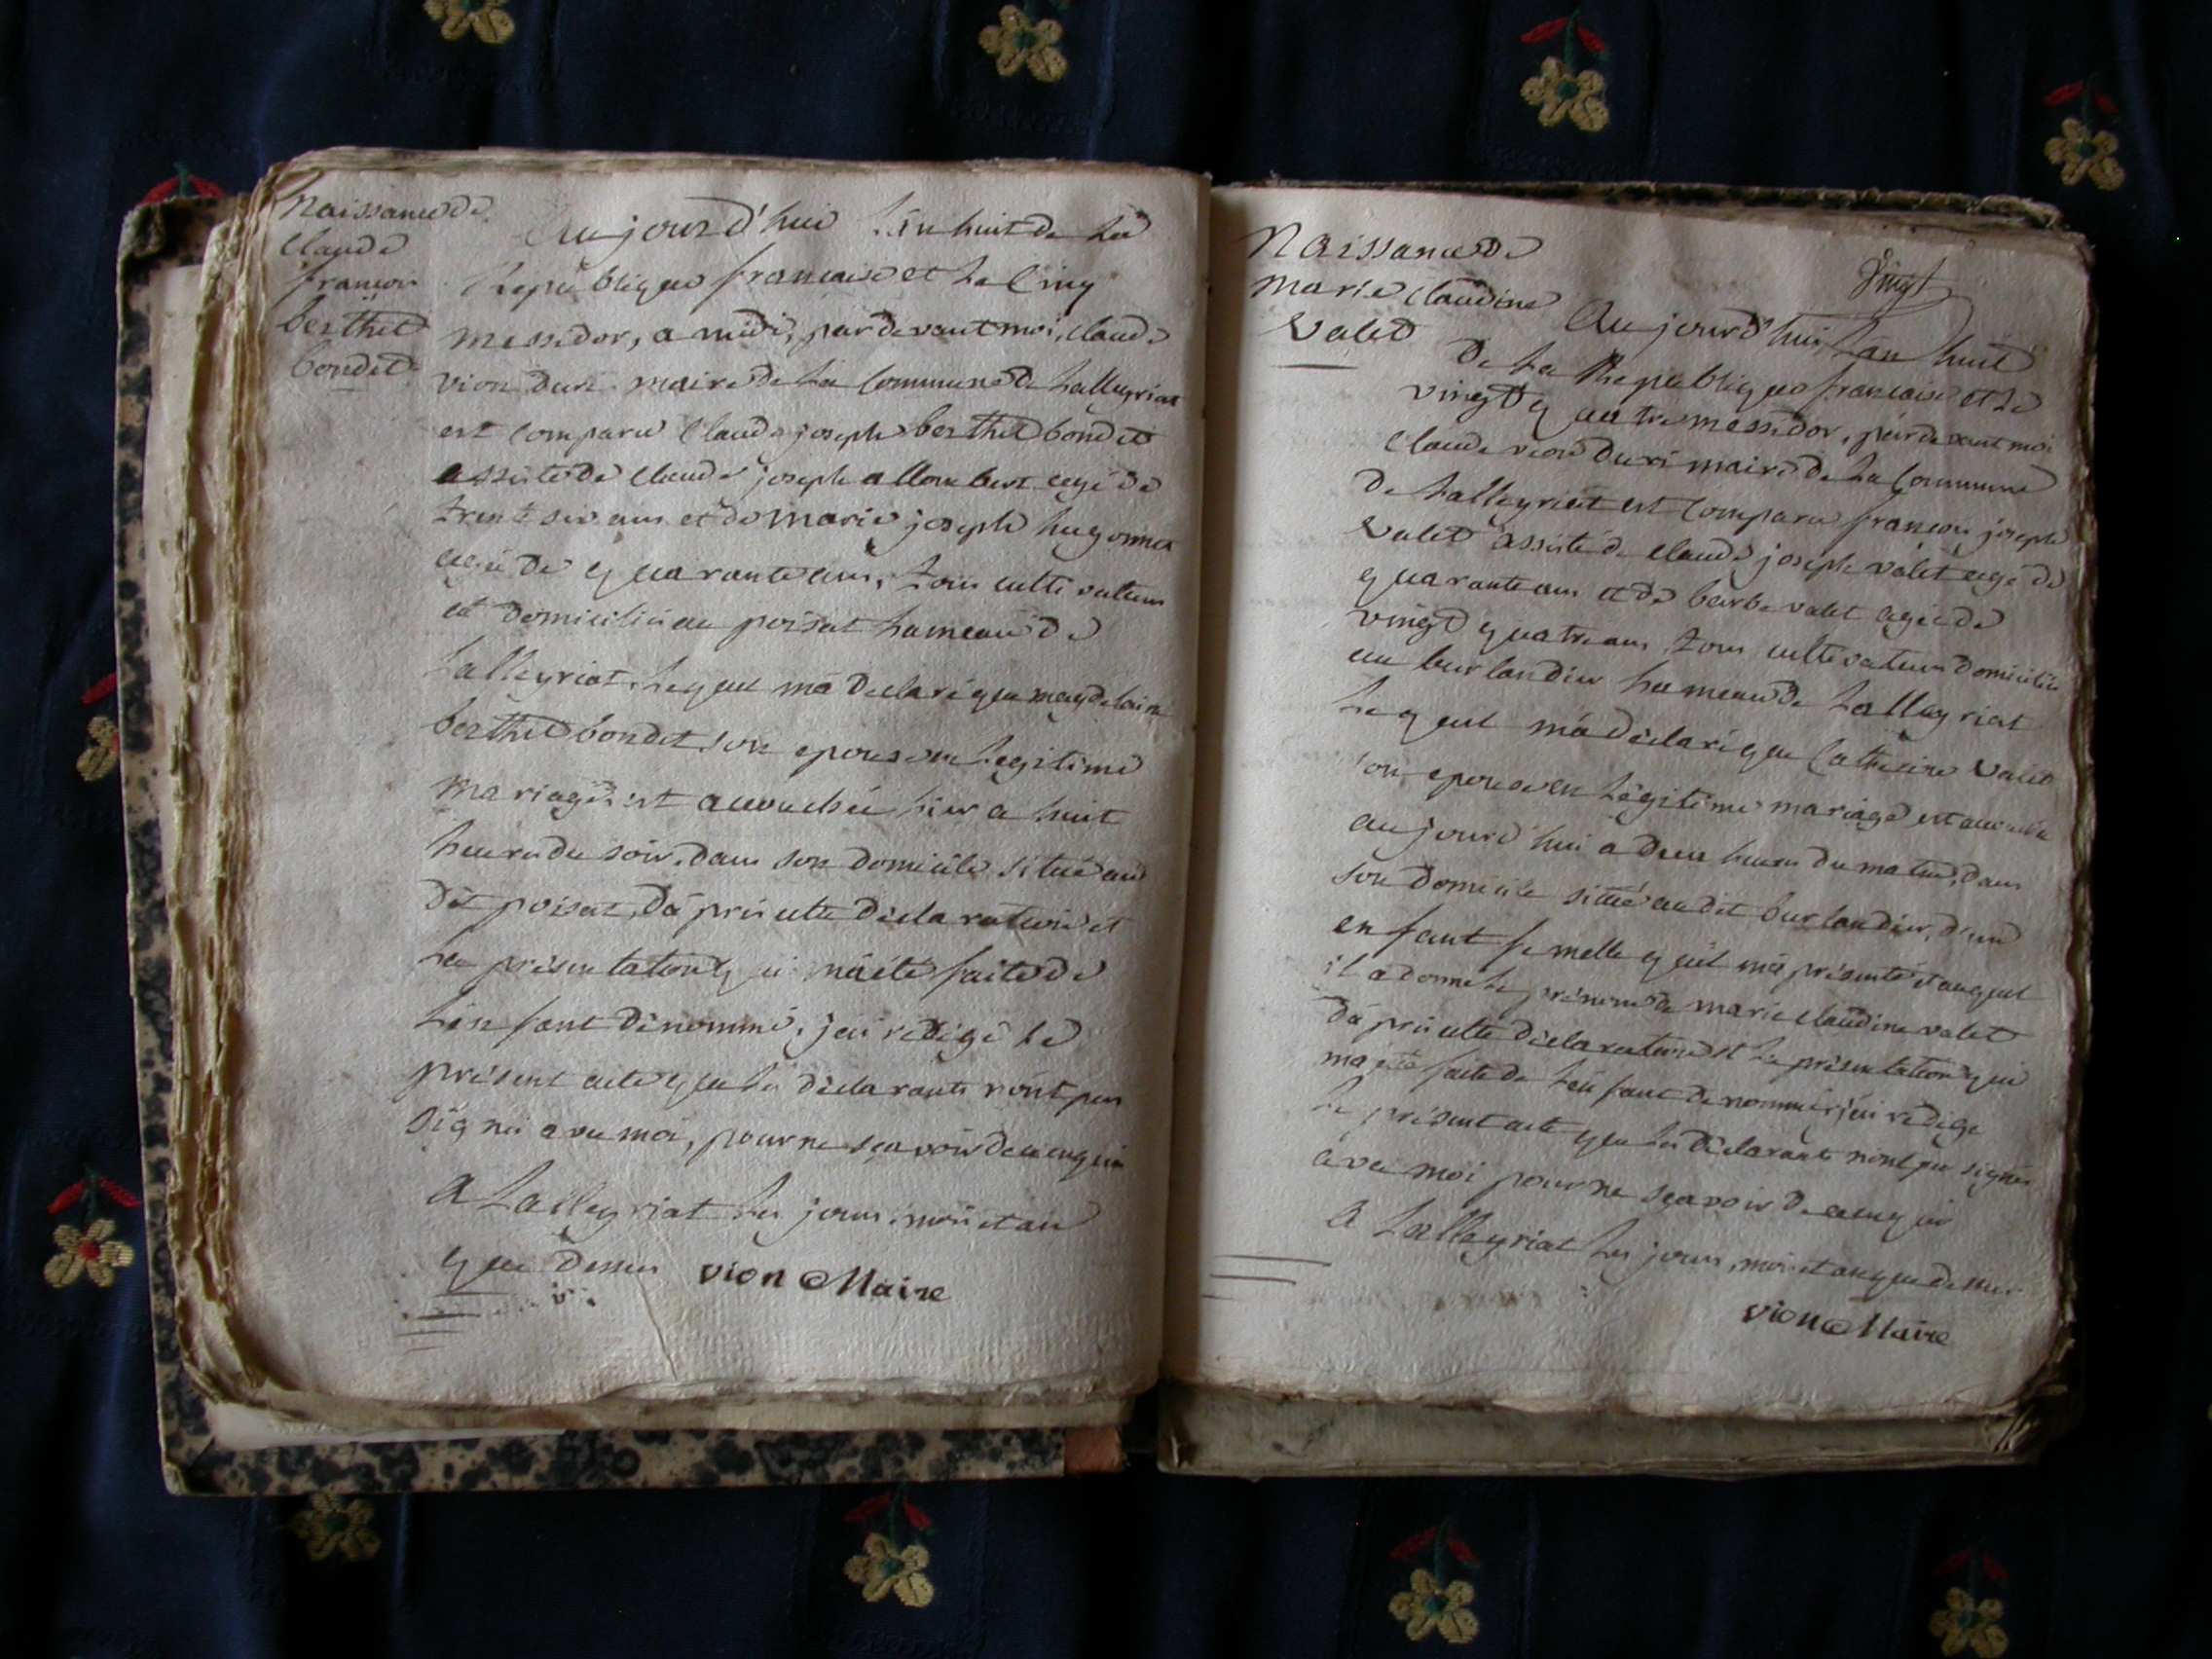 Naissance de
Claude
francois
berthet
bondet
Aujourd'hui l'an huit de la
Republique francaise et le Cinq
messidor, a midi, pardevant moi, claude
vion duri maire de la Commune de Lalleyriat
est Comparu Claude joseph berthet bondet
assisté de claude joseph allombert agé de
trente six ans et de marie joseph hugonnet
agée de quarante ans, tous cultivateurs
et domiciliés au poisat hameau de
Lalleyriat, lequel m'a declaré que magdelaine
berthet bondet son epouse en legitime
mariage est accouchée hier a huit
heures du soir, dans son domicile situé au
dit poisat, d'aprés cette déclaration et
la présentation qui m'a été faite de
l'enfant dénommé, j'ai rédigé le
présent acte que les déclarants n'ont pas
signés avec moi, pour ne scavoir de ce enquis
A Lalleyriat les jours, mois et an
que dessus vion Maire
Naissance de
marie Claudine
Valet
vingt
Aujourd'hui, l'an huit
de la Republique francaise et le
vingt quatre messidor, pardevant moi
Claude vion duri maire de la Commune
de Lalleyriat est Comparu francois joseph
Valet assisté de claude joseph valet agé de
quarante ans et de barbe valet agée de
vingt quatre ans tous cultivateurs domiciliés
au burlandier hameau de Lalleyriat
Lequel m'a déclaré que Catherine Valet
son epouse en légitime mariage est accouchée
aujourd'hui a deux heures du matin, dans
son domicile situé audit burlandier, d'un
enfant femelle qu'il m'a présenté et auquel
il a donné le prénom de marie claudine valet
d'aprés cette déclaration et la présentation qui
m'a été faite de l'enfant denommé, j'ai redigé
le présent acte que les déclarants n'ont pas signés
avec moi pour ne scavoir de ce enquis
A Lalleyriat les jours, mois et an que dessus
vion Maire